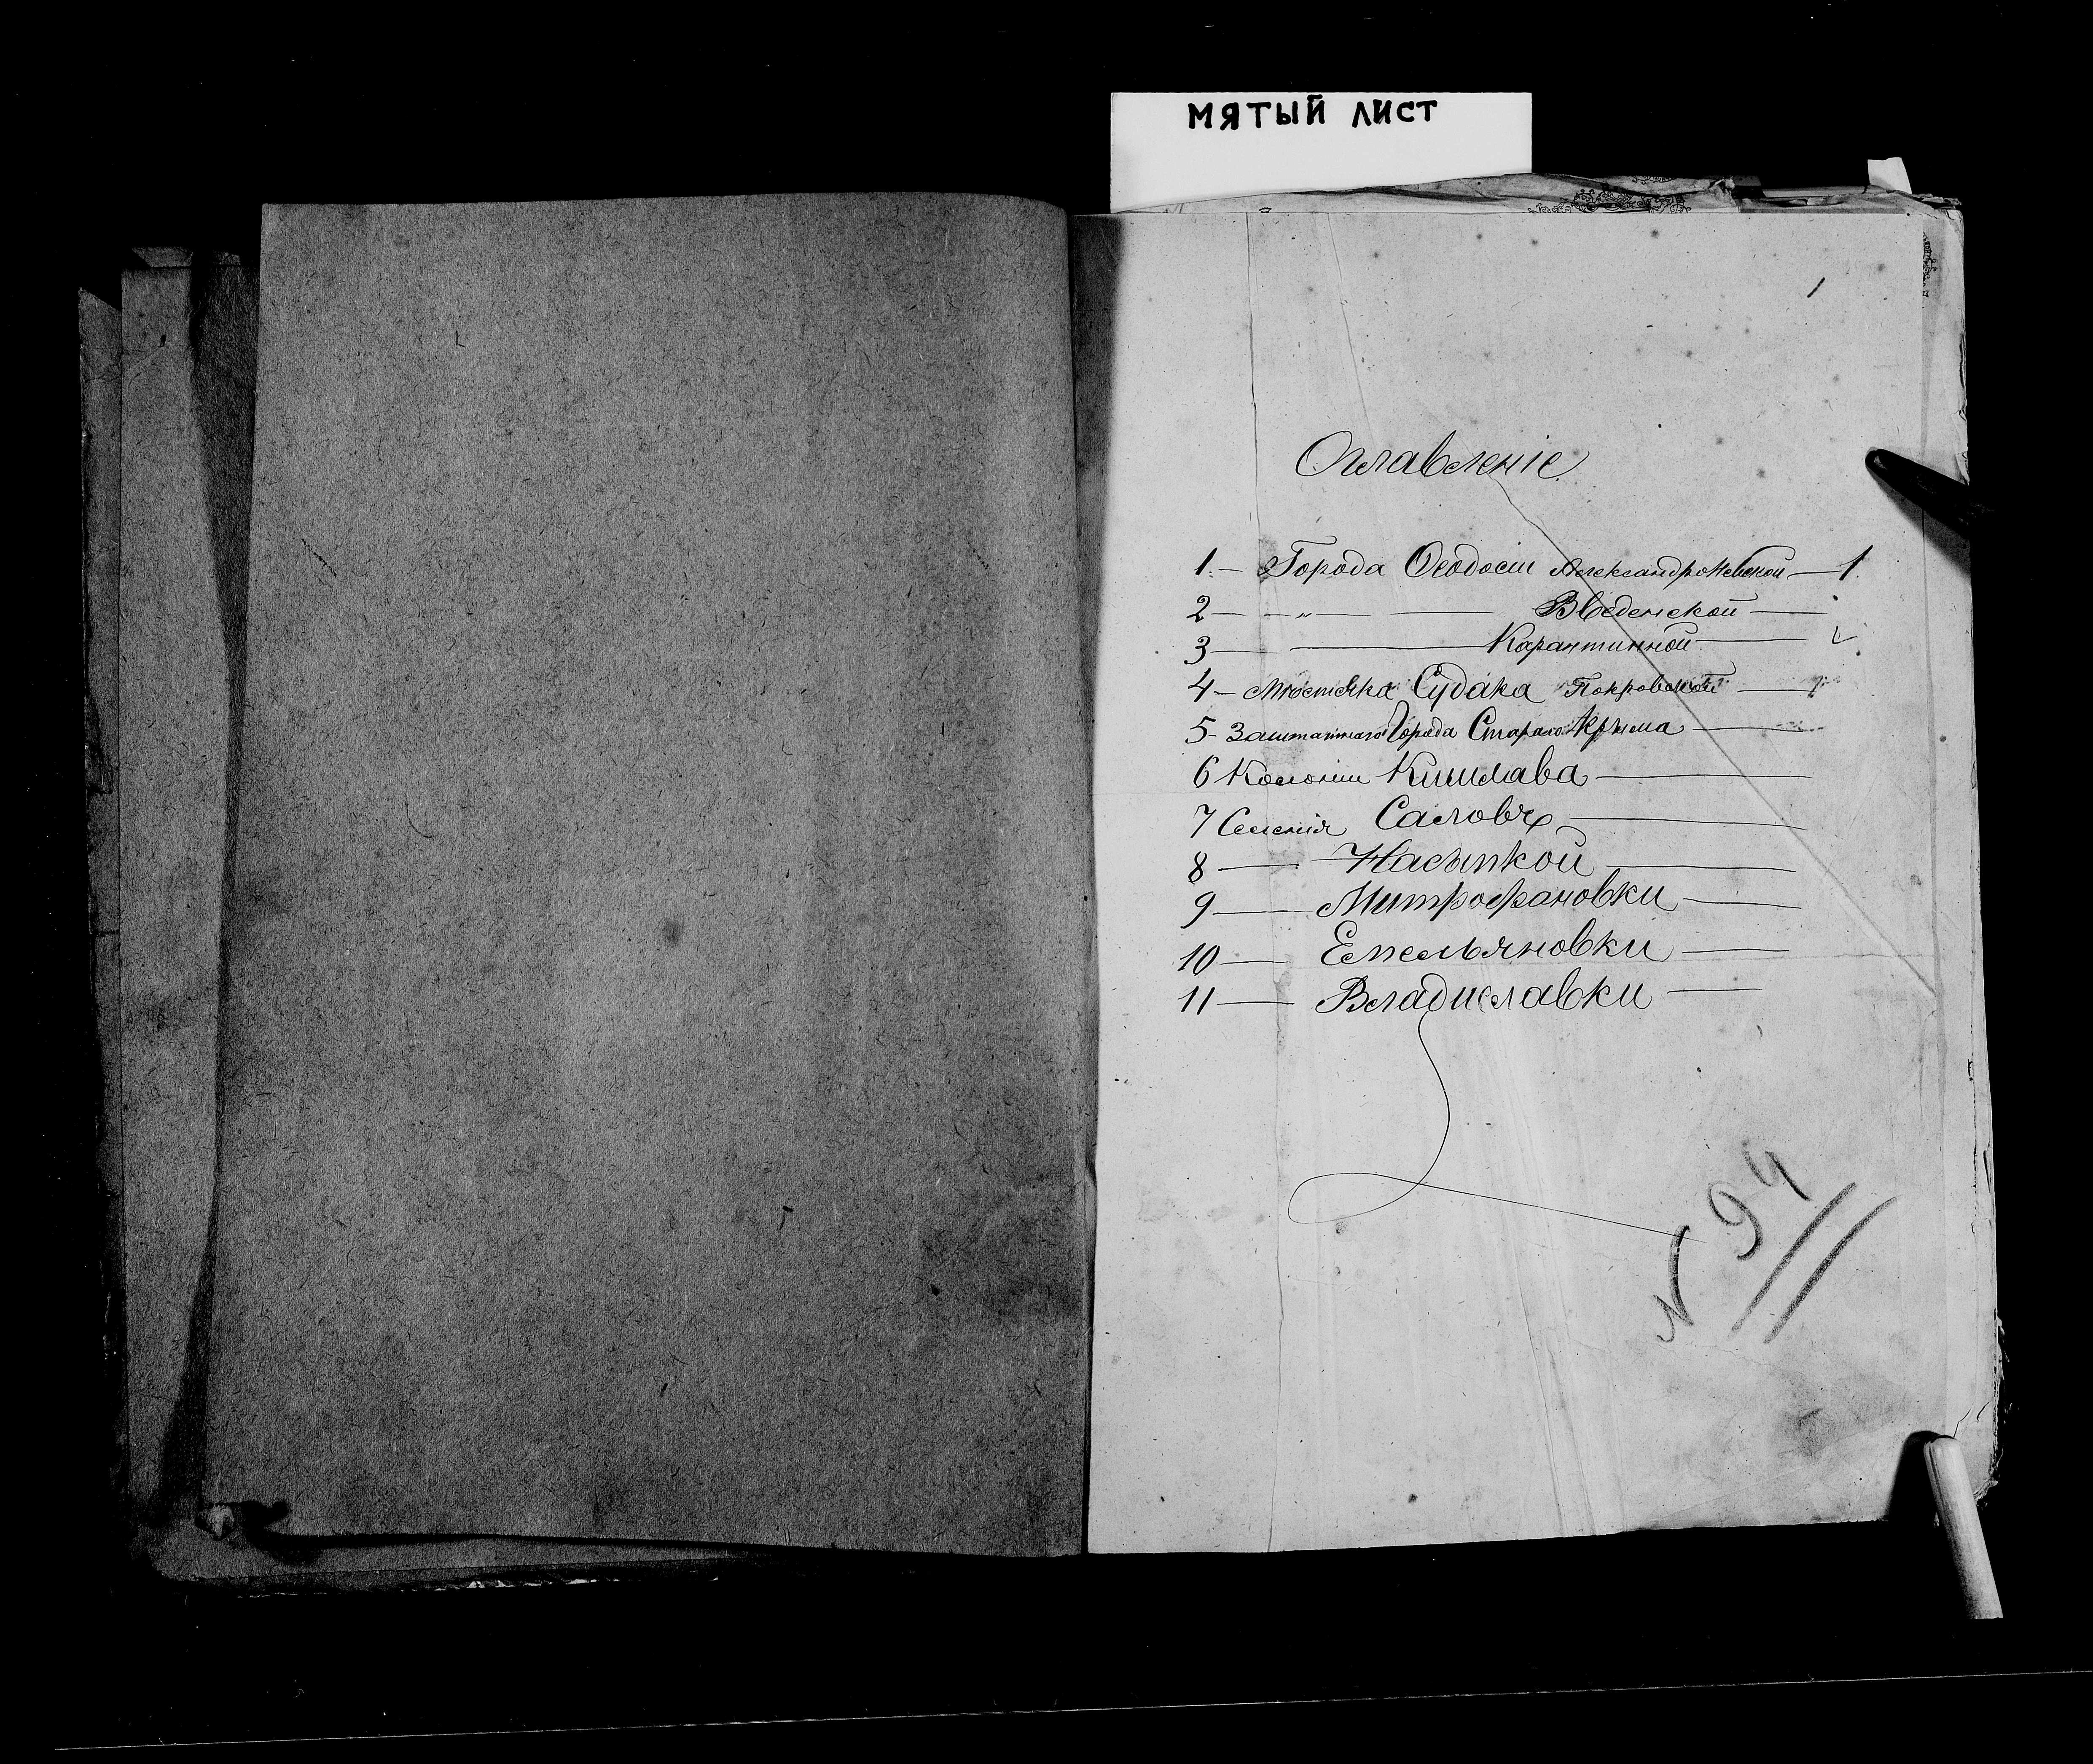 МЯТЫЙ ЛИСТ
1
Оглавленіе
1. — Города Ѳеодосіи Александро Невской — 1.
2 — — „ — — Введенской —
3 — — Карантинной —
4 — Мѣстечка Судака Покровской —
5 - Заштатнаго Города Стараго Крыма —
6 Колоніи Кишлава —
7 Селенія Саловъ —
8 — Насыпкой —
9 — Митрофановки —
10 — Емельяновки —
11 — Владиславки —
N 94